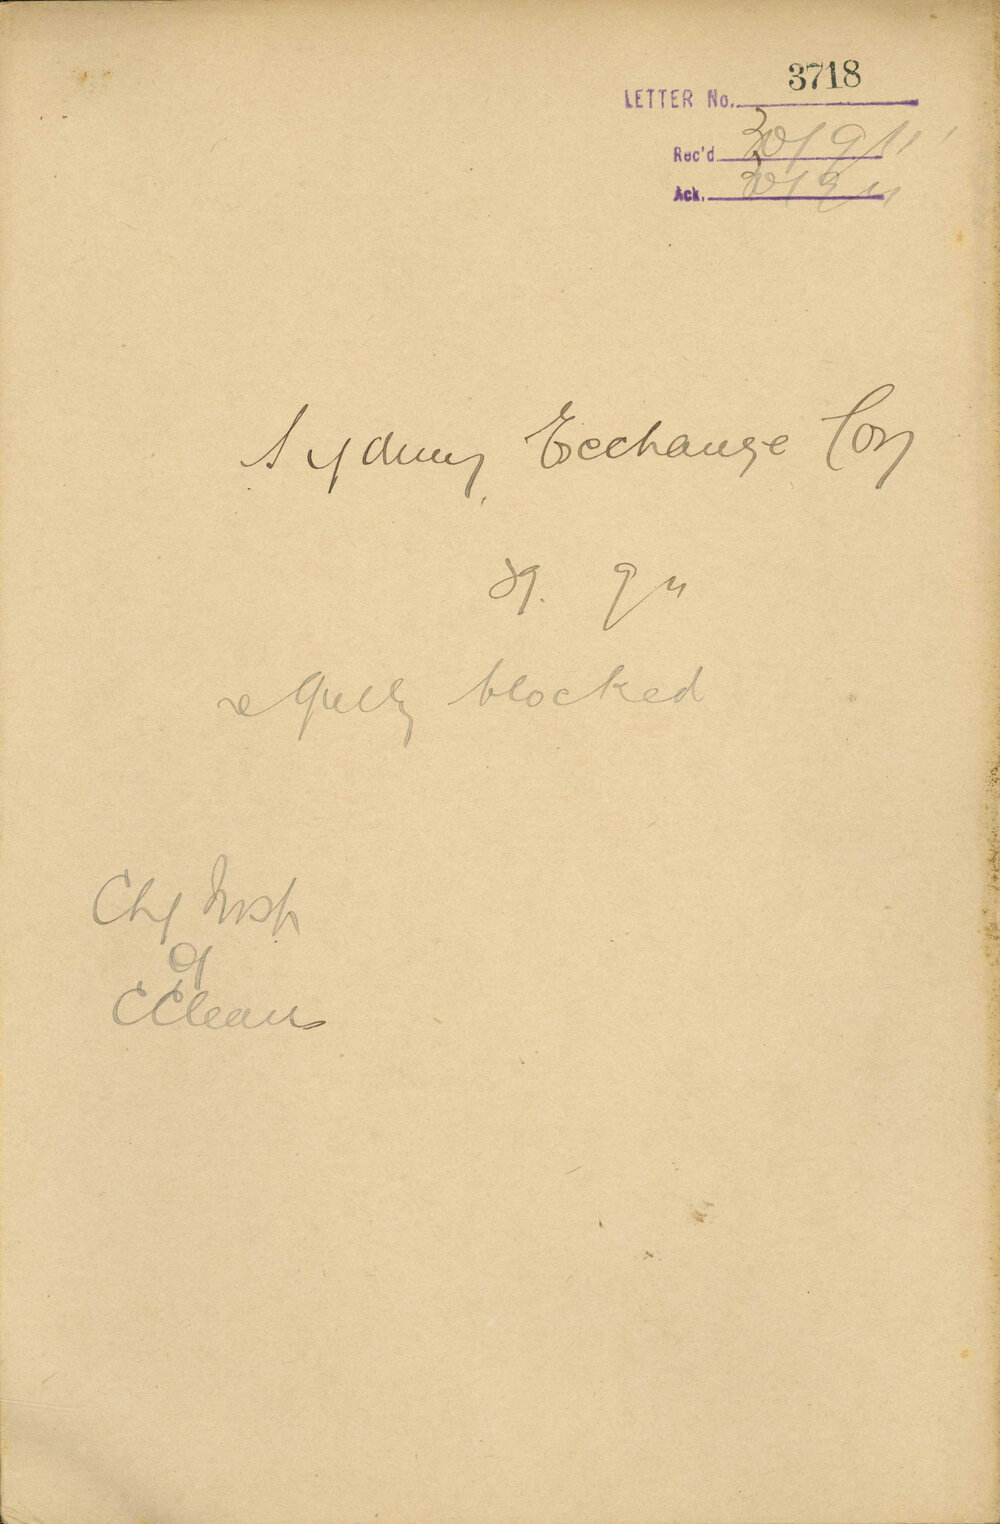 LETTER No. 3718
Rec'd 30/9/11
Ack. 30/9/11
Sydney Exchange Coy
29. 9 11
re Gully blocked
Ch/ Insp
of
CCleans